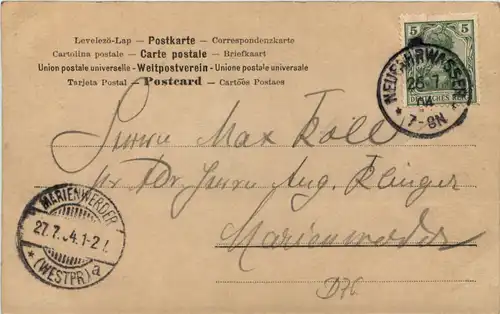 Levelező-Lap — Postkarte — Correspondenzkarte
Cartolina postale — Carte postale — Briefkaart
Union postale universelle — Weltpostverein — Unione postale universale
Tarjeta Postal — Postcard — Cartões Postaes
5 5
DEUTSCHES REICH
NEUFAHRWASSER
26.7.
04
* 7-8N
Herrn Max
Herrn Aug. Klinger
Marienwerder
MARIENWERDER
27.7.04.1-2
* (WESTPR) a